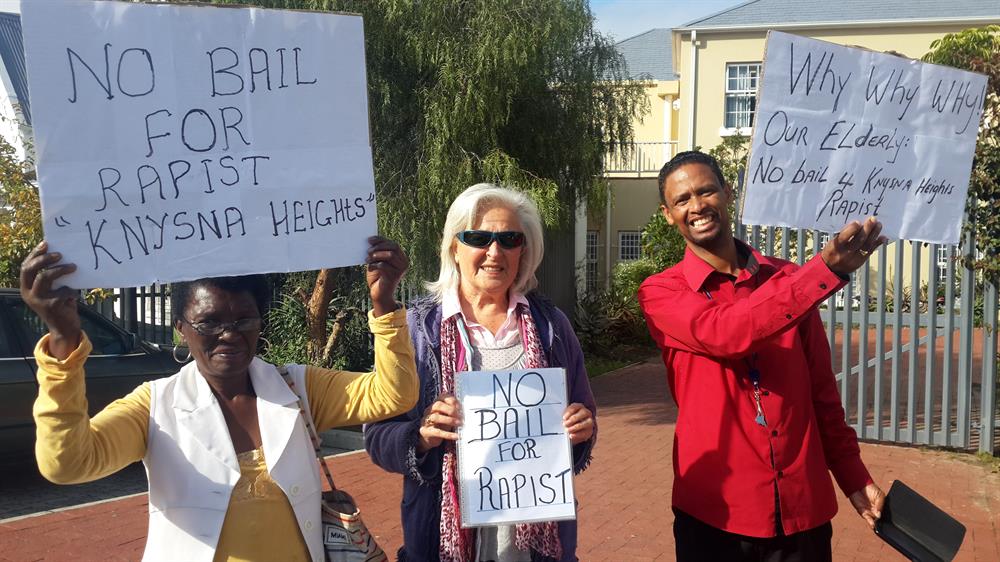 NO BAIL
FOR
RAPIST
"KNYSNA HEIGHTS"
NO
BAIL
FOR
RAPIST
Why Why WHY!
OUR ELDERLY:
NO bAiL 4 KNYSNA HEIGHTS
RAPIST
MIAMI